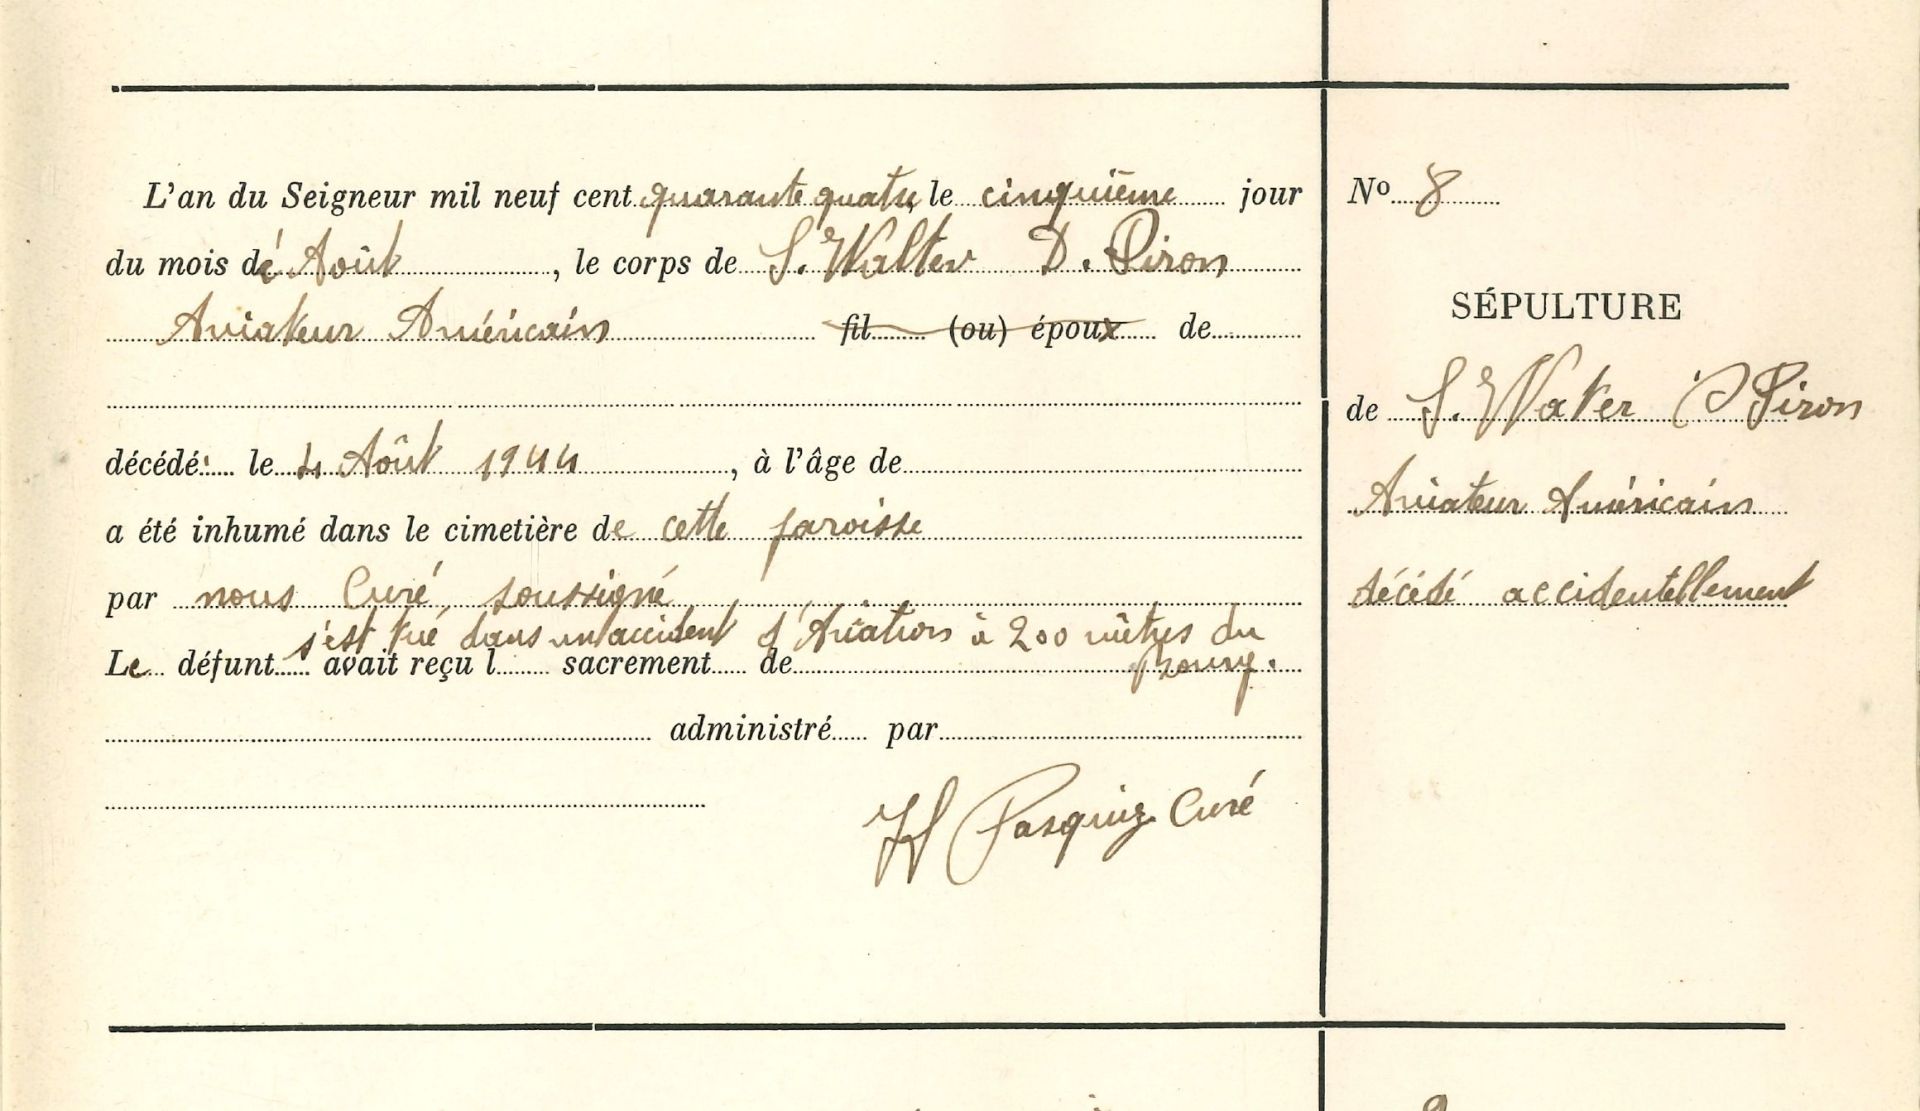 L'an du Seigneur mil neuf cent quarante quatre, le cinquième jour
du mois de Août, le corps de S. Walter D. Piron
Aviateur Américain fil (ou) époux de
décédé le 4 Août 1944, à l'âge de
a été inhumé dans le cimetière de cette paroisse
par nous Curé, soussigné
s'est tué dans un accident d'Aviation à 200 mètres du
Le défunt avait reçu l sacrement de
administré par
Pasquiez Curé
No 8
SÉPULTURE
de S. Walter D Piron
Aviateur Américain
décédé accidentellement